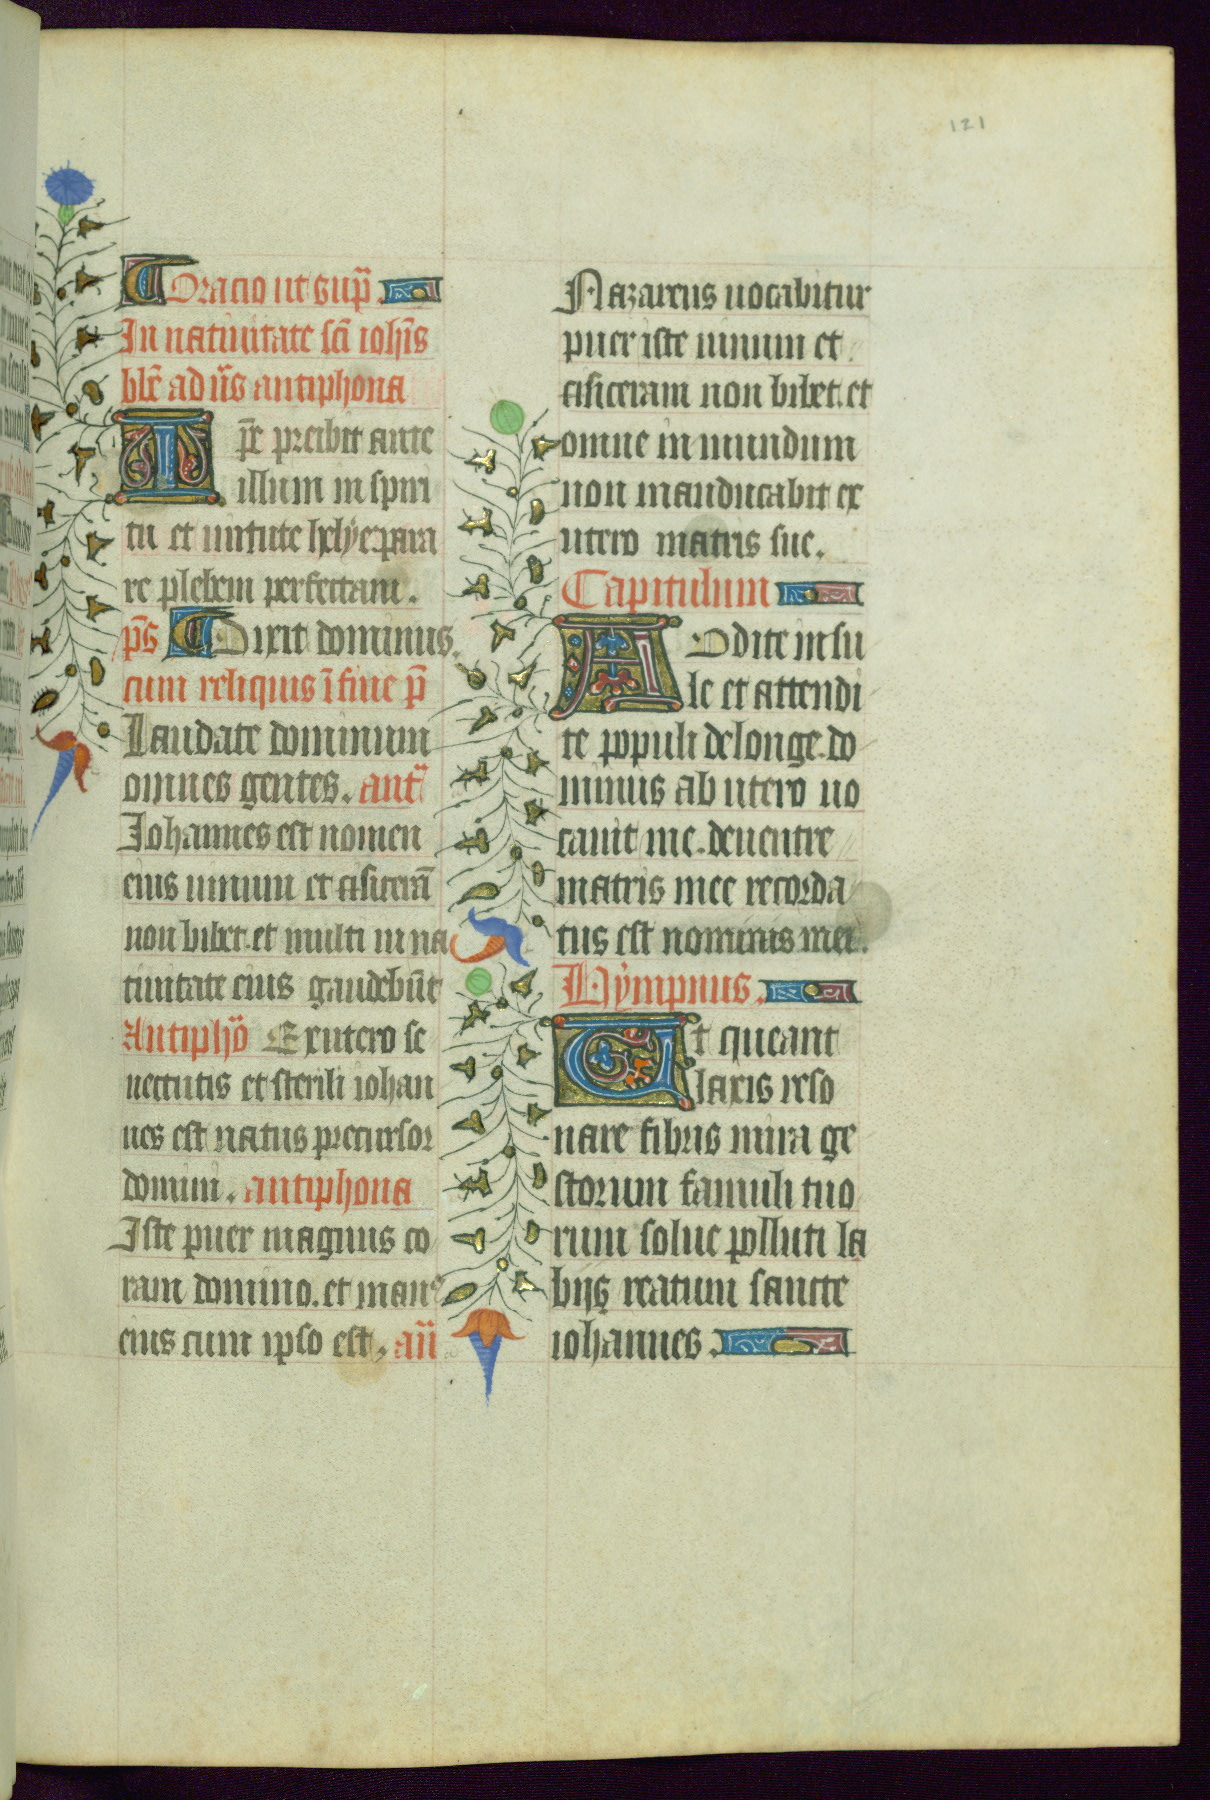 121
Oracio ut sup̃.
In natiuitate sc̃i ioh̃is
bl̃e ad ũs antiphona
Ip̃e preibit ante
illum in spiri
tu et uirtute helye parra
re plebem perfectam.
p̃s Dixit dominus.
cum reliquis ĩ fine p̃
Laudate dominum
omnes gentes. ant̃
Johannes est nomen
eius uinum et cisicerã
non bibet. et multi in na
tiuitate eius gaudebũt
Antiphõ Ex utero se
nectutis et sterili iohan
nes est natus precursor
domini. antiphona
Iste puer magnus co
ram domino. et manꝰ
eius cum ipso est. añ
Nazareus uocabitur
puer iste uinum et
cisiceram non bibet. et
omne in mundum
non manducabit ex
utero matris sue.
Capitulum
Audite insu
le et attendi
te populi de longe. do
minus ab utero uo
cauit me. de uentre
matris mee recorda
tus est nominis mei.
Hympnus.
Ut queant
laxis reso
nare fibris mira ge
storum famuli tuo
rum solue polluti la
bijs reatum sancte
iohannes.